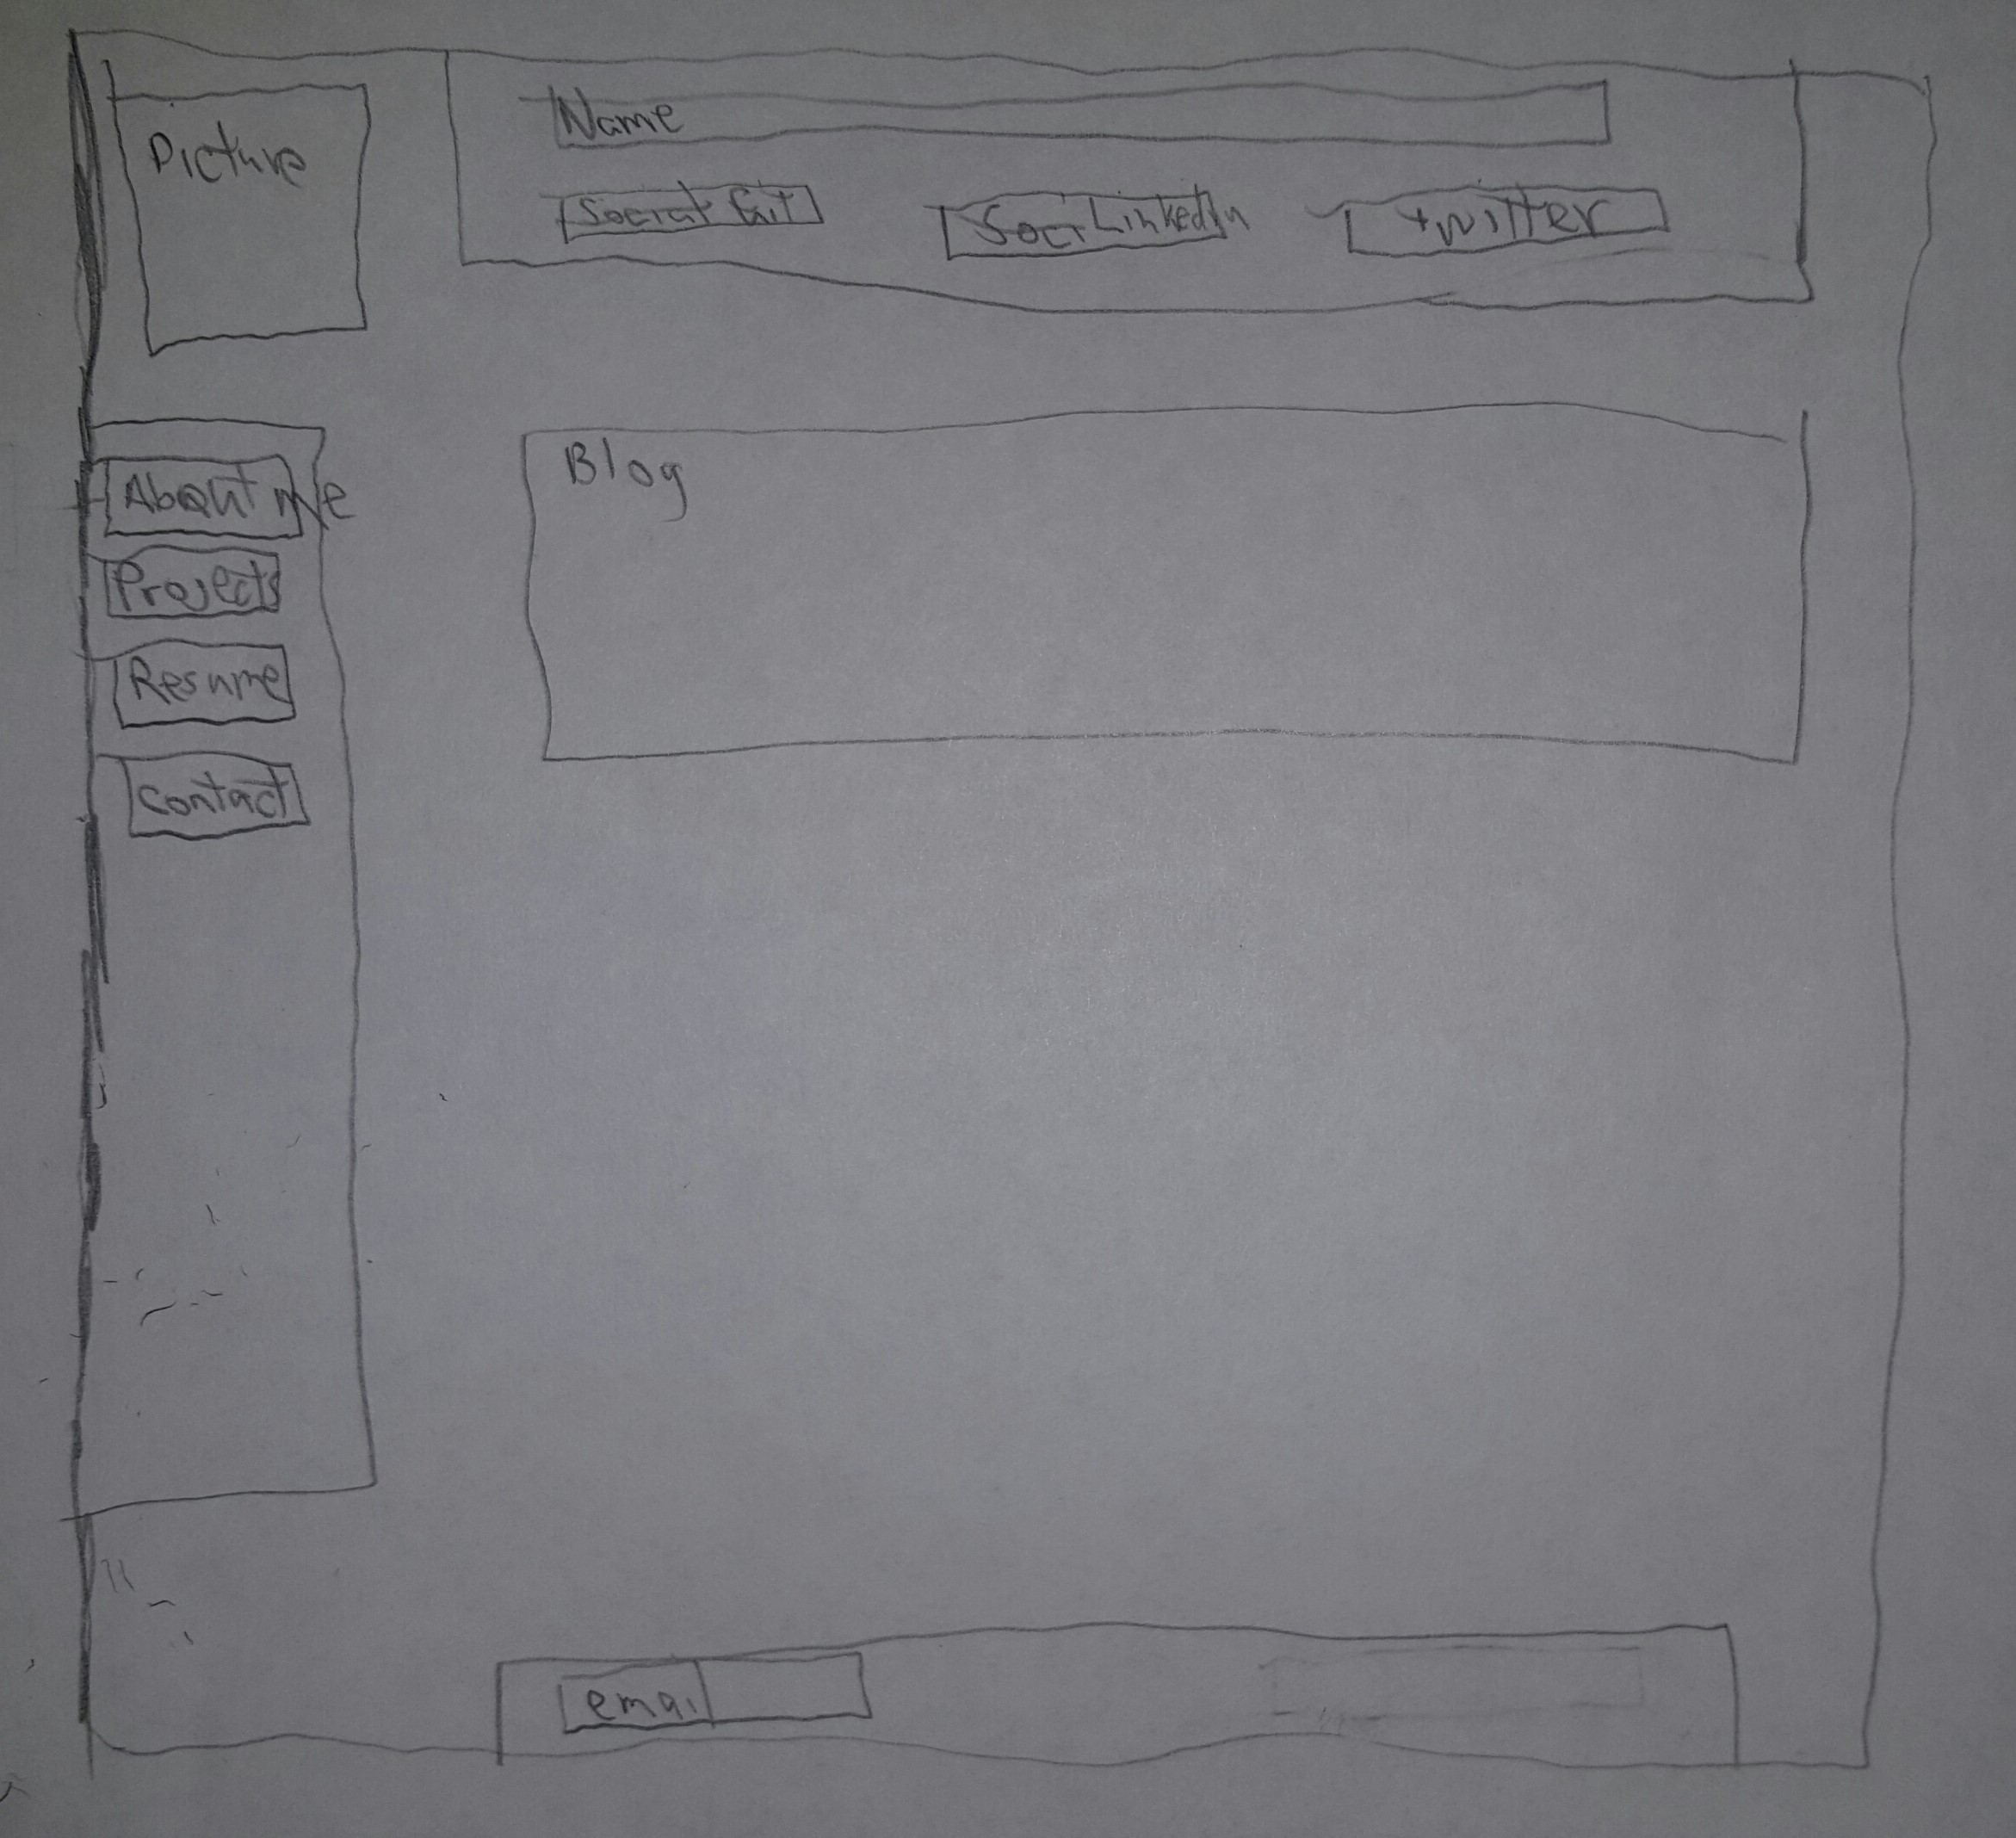 Picture
Name
Social
LinkedIn
twitter
About me
Projects
Resume
Contact
Blog
email